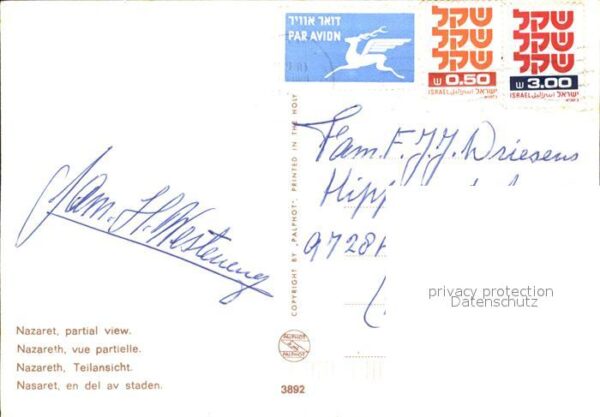 דואר אוויר
PAR AVION
שקל
שקל
שקל
שקל
שקל
שקל
0.50
3.00
ISRAEL اسرائيل ישראל
ISRAEL اسرائيل ישראל
Fam. F. J. J. Driesens
9728
Fam. H. Westening
COPYRIGHT BY "PALPHOT" PRINTED IN THE HOLY
privacy protection
Datenschutz
Nazaret, partial view.
Nazareth, vue partielle.
Nazareth, Teilansicht.
Nasaret, en del av staden.
PALPHOT
PALPHOT
3892